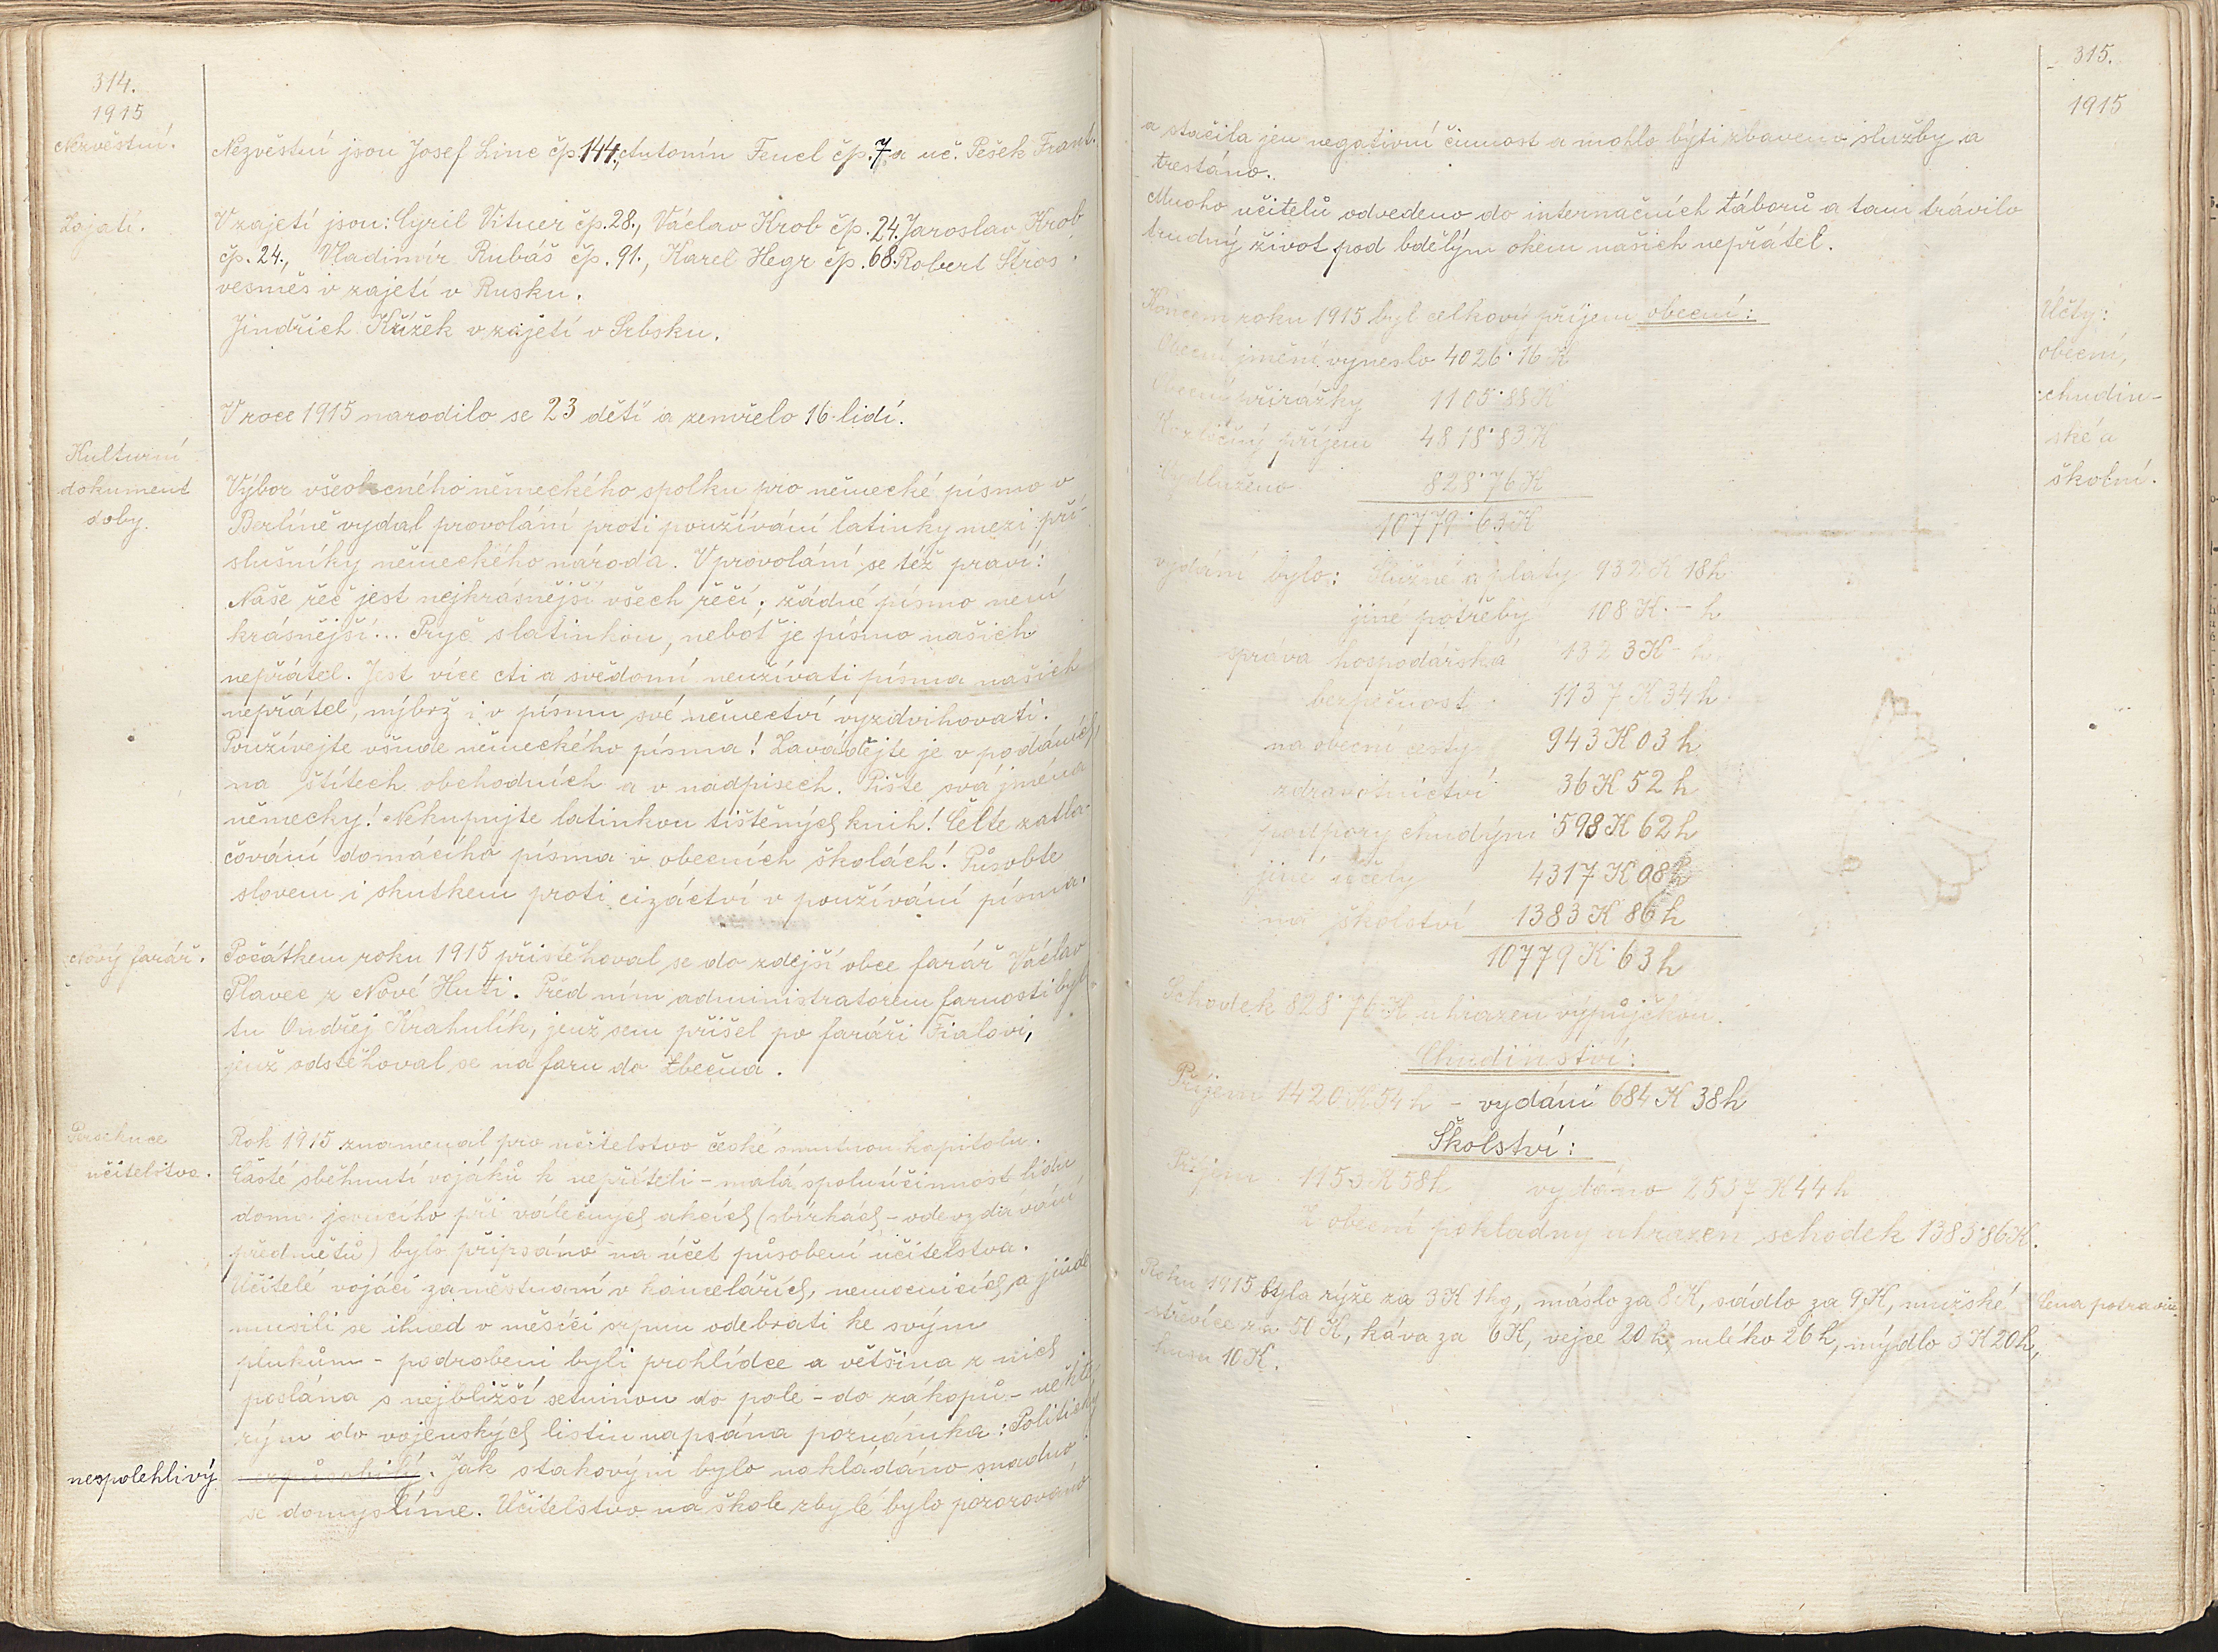 314.
1915
Nezvěstní.
Nezvěstní jsou Josef Linc čp. 144., Antonín Fencl čp. 7 a uč. Pešek Frant.
Zajatí.
V zajetí jsou: Cyril Vitner čp. 28., Václav Krob čp. 24. Jaroslav Krob
čp. 24., Vladimír Rubáš čp. 91., Karel Hegr čp. 68. Robert Štros
vesměs v zajetí v Rusku.
Jindřich Křížek v zajetí v Srbsku.
V roce 1915 narodilo se 23 dětí a zemřelo 16 lidí.
Kulturní
dokument
doby.
Výbor všeobecného německého spolku pro německé písmo v
Berlíně vydal provolání proti používání latinky mezi pří-
slušníky německého národa. V provolání se též praví:
Naše řeč jest nejkrásnější všech řečí; žádné písmo není
krásnější... Pryč s latinkou, neboť je písmo našich
nepřátel. Jest více cti a svědomí neužívati písma našich
nepřátel, nýbrž i v písmu své němectví vyzdvihovati.
Používejte všude německého písma! Zavádějte je v podáních,
na štítech obchodních a v nadpisech. Pište svá jména
německy! Nekupujte latinkou tištěných knih! Čelte zatla-
čování domácího písma v obecních školách! Působte
slovem i skutkem proti cizáctví v používání písma.
Nový farář.
Počátkem roku 1915 přistěhoval se do zdejší obce farář Václav
Plavec z Nové Huti. Před ním administrátorem farnosti byl
tu Ondřej Krahulík, jenž sem přišel po faráři Fialovi,
jenž odstěhoval se na faru do Zbečna.
Persekuce
učitelstva.
Rok 1915 znamenal pro učitelstvo české smutnou kapitolu.
Časté sběhnutí vojáků k nepříteli - malá spoluúčinnost lidu
doma jevícího při válečných akcích (sbírkách - odevzdávání
předmětů) bylo připsáno na účet působení učitelstva.
Učitelé vojáci zaměstnaní v kancelářích, nemocnicích a jinde
musili se ihned v měsíci srpnu odebrati ke svým
plukům - podrobeni byli prohlídce a většina z nich
poslána s nejbližší setninou do pole - do zákopů - někte-
rým do vojenských listin napsána poznámka: Politicky
nespolehlivý
nezpůsobilý. Jak s takovými bylo nakládáno snadno
se domyslíme. Učitelstvo na škole zbylé bylo pozorováno
315.
1915
a stačila jen negativní činnost a mohlo býti zbaveno služby a
trestáno.
Mnoho učitelů odvedeno do internačních táborů a tam trávilo
trudný život pod bdělým okem našich nepřátel.
Účty:
obecní,
chudin-
ské a
školní.
Koncem roku 1915 byl celkový příjem obecní:
Obecní jmění vyneslo 4026·16 K
Obecní přirážky 1105·88 K
Rozličný příjem 4818·83 K
Vydluženo 828·76 K
10779·63 K
vydání bylo: Služné a platy 932 K 18 h
jiné potřeby 108 K - h
správa hospodářská 1323 K - h
bezpečnost 1137 K 34 h
na obecní cesty 943 K 03 h
zdravotnictví 36 K 52 h
podpory chudým 598 K 62 h
jiné účely 4317 K 08 h
na školství 1383 K 86 h
10779 K 63 h
Schodek 828·76 K uhrazen výpůjčkou.
Chudinství:
Příjem 1420 K 54 h - vydání 684 K 38 h
Školství:
Příjem 1153 K 58 h vydáno 2537 K 44 h
Z obecní pokladny uhrazen schodek 1383·86 K.
Cena potravin
Roku 1915 byla rýže za 3 K 1 kg, máslo za 8 K, sádlo za 9 K, mužské
střevíce za 50 K, káva za 6 K, vejce 20 h, mléko 26 h, mýdlo 3 K 20 h,
husa 10 K.